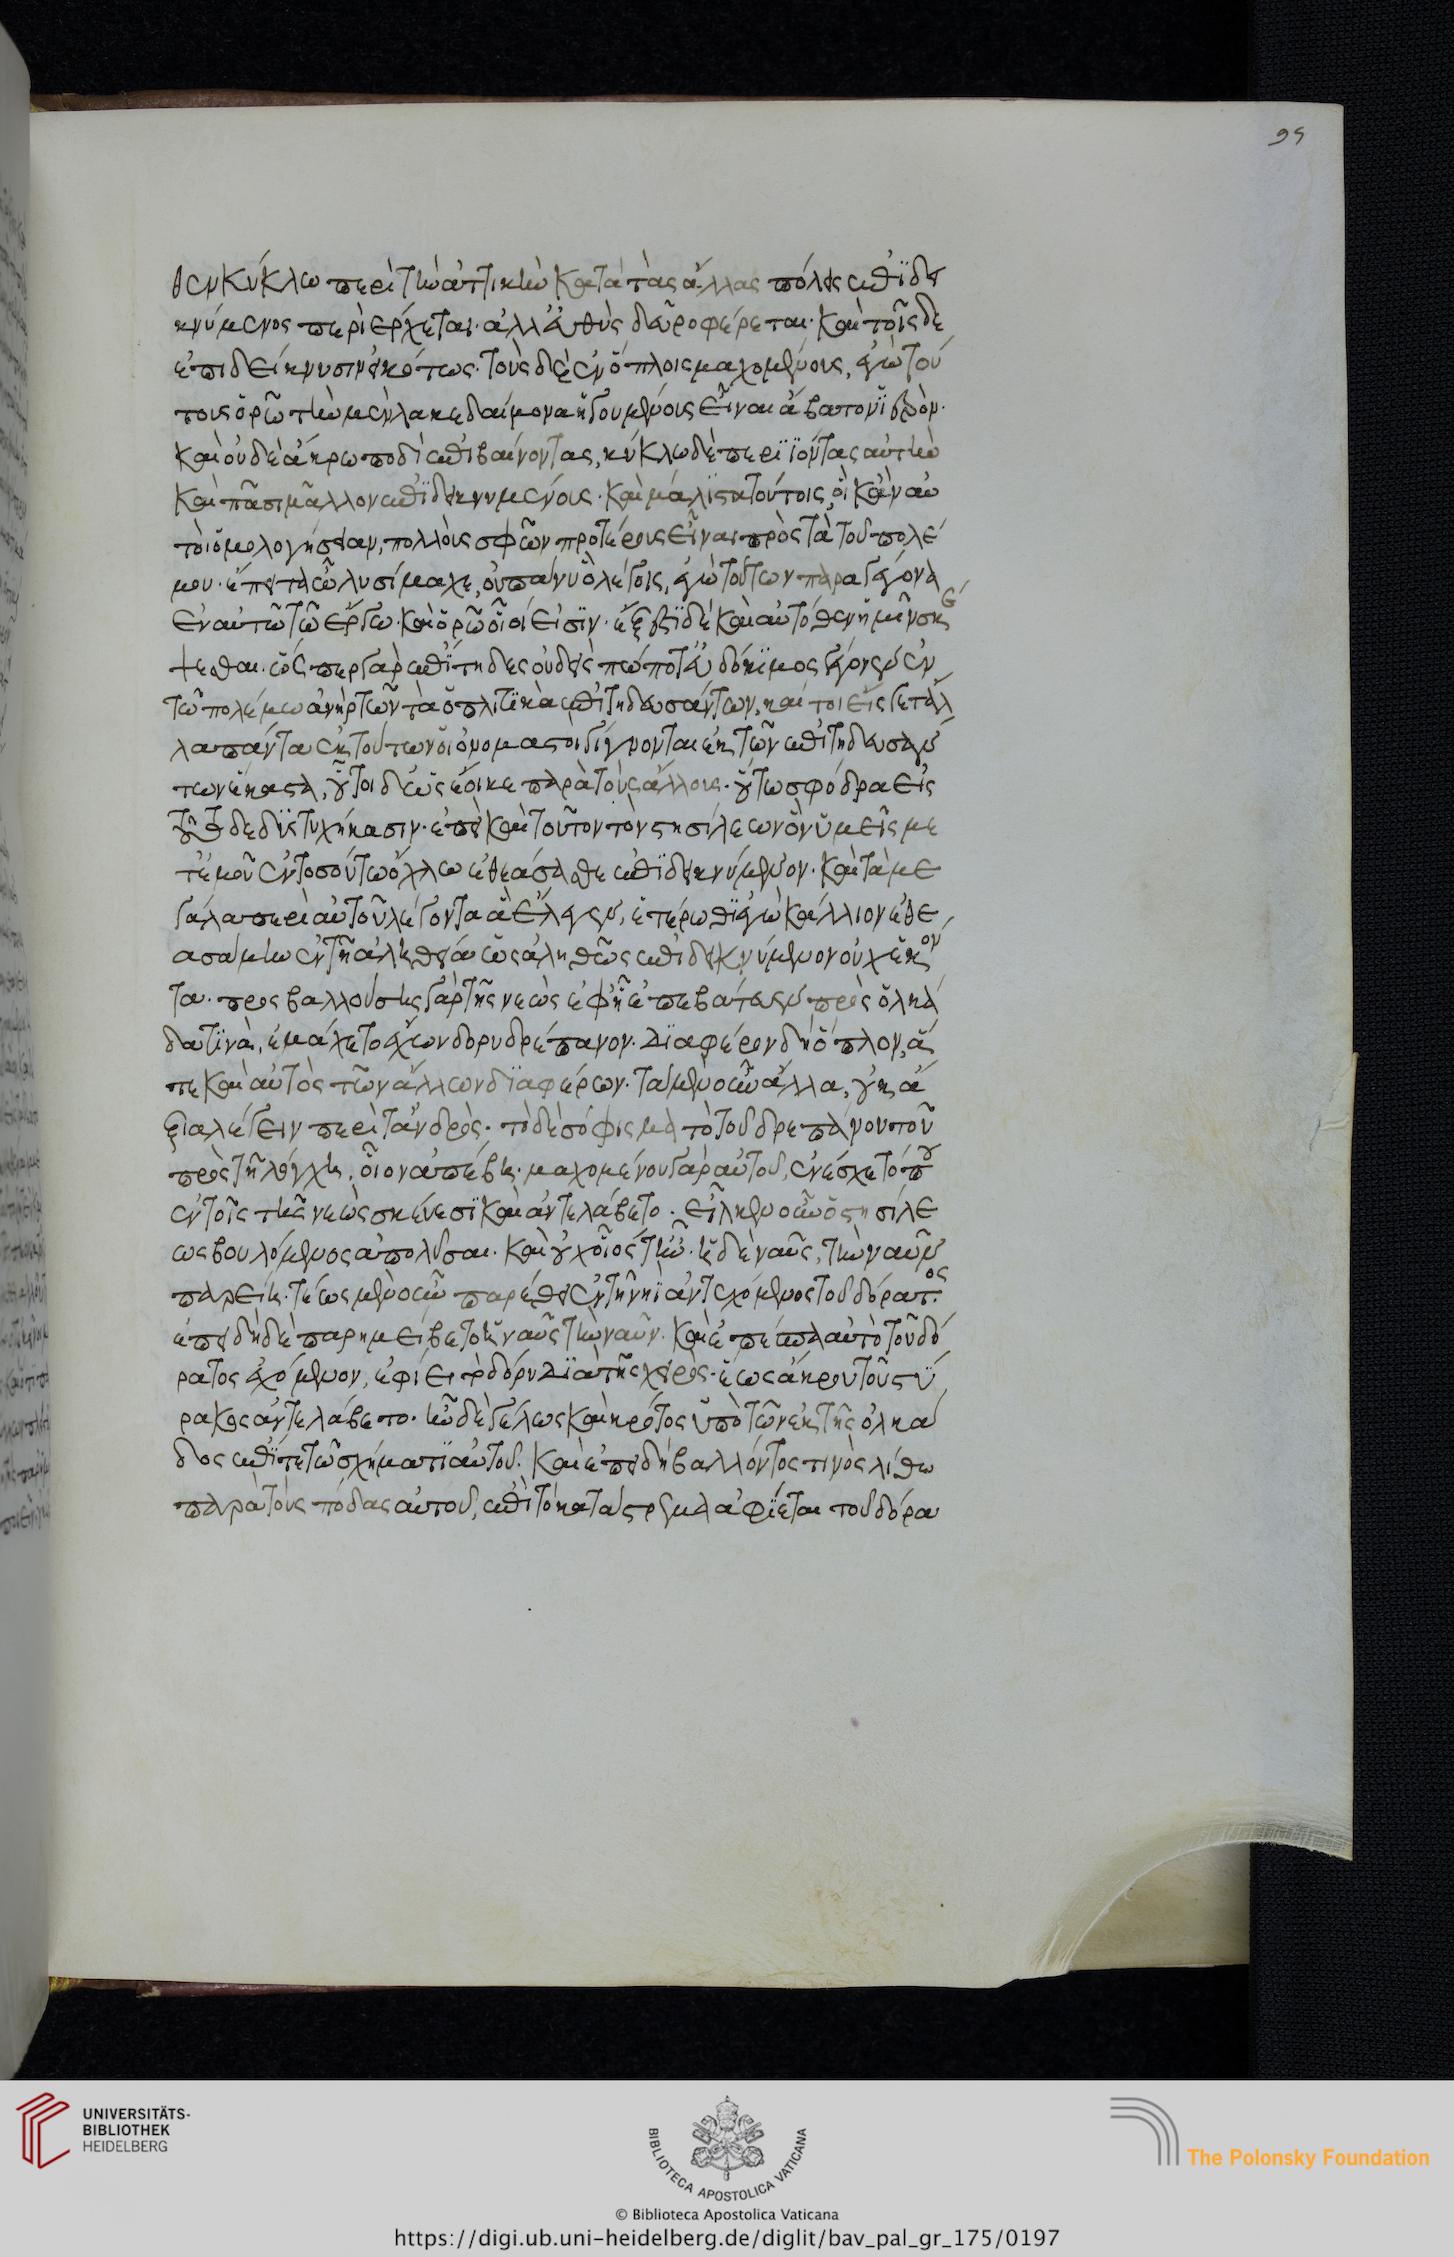 θεν κύκλω περὶ τὴν ἀττικὴν κατὰ τὰς ἄλλας πόλεις ἐπιδει
κνύμενος περιέρχεται· ἀλλ' εὐθὺς δεῦρο φέρεται· καὶ τοῖς δε
ἐπιδείκνυσιν εἰκότως· τοὺς δὲ ἐν ὅπλοις μαχομένους, ἐγὼ τού
τους ὁρῶ τὴν μὲν λακεδαίμονα ἡγουμένους εἶναι ἄβατον ἱερὸν·
καὶ οὐδὲ ἄκρω ποδὶ ἐπιβαίνοντας, κύκλω δὲ περιϊόντας αὐτὴν
καὶ πᾶσι μᾶλλον ἐπιδεικνυμένους· καὶ μάλιστα τούτοις, οἳ κἂν αὐ
τοὶ ὁμολογήσειαν, πολλοὺς σφῶν προτέρους εἶναι πρὸς τὰ τοῦ πολέ
μου· ἔπειτα ὦ λυσίμαχε, οὐ πάνυ ὀλίγοις, ἐγὼ τούτων παραγέγονα
ἐν αὐτῶ τῶ ἔργω· καὶ ὁρῶ οἷοί εἰσιν· ἔξεστι δὲ καὶ αὐτόθεν ἡμῖν σκέ
ψεσθαι· ὥσπερ γὰρ ἐπίτηδες οὐδεὶς πώποτ' εὐδόκιμος γέγονεν ἐν
τῶ πολέμω ἀνὴρ τῶν τὰ ὁπλιτικὰ ἐπιτηδευσάντων, καί τοι εἴς γε τἆλ
λα πάντα ἐκ τούτων οἱ ὀνομαστοὶ γίγνονται ἐκ τῶν ἐπιτηδευσάν
των ἕκαστα, οὗτοι δ' ὡς ἔοικε παρὰ τοὺς ἄλλους· οὕτω σφόδρα εἰς
τοῦτο δεδυστυχήκασιν· ἐπεὶ καὶ τοῦτον τὸν στησίλεων ὃν ὑμεῖς με
τ' ἐμοῦ ἐν τοσούτω ὄχλω ἐθεάσασθε ἐπιδεικνύμενον· καὶ τὰ με
γάλα περὶ αὐτοῦ λέγοντα ἃ ἔλεγεν, ἑτέρωθι ἐγὼ κάλλιον ἐθε
ασάμην ἐν τῆ ἀληθεία ὡς ἀληθῶς ἐπιδεικνύμενον οὐχ ἑκόν
τα· προσβαλλούσης γὰρ τῆς νεὼς ἐφ' ἧ ἐπεβάτευεν πρὸς ὁλκά
δα τινὰ, ἐμάχετο ἔχων δορυδρέπανον· διαφέρον δὴ ὅπλον, ἅ
τε καὶ αὐτὸς τῶν ἄλλων διαφέρων· τὰ μὲν οὖν ἄλλα, οὐκ ἄ
ξια λέγειν περὶ τἀνδρὸς· τὸ δὲ σόφισμα τὸ τοῦ δρεπάνου τοῦ
πρὸς τῆ λόγχη, οἷον ἀπέβη· μαχομένου γὰρ αὐτοῦ, ἐνέσχετό που
ἐν τοῖς τῆς νεὼς σκεύεσι καὶ ἀντελάβετο· εἷλκεν οὖν ὁ στησίλε
ως βουλόμενος ἀπολῦσαι· καὶ οὐχ οἷός τ' ἦν· ἡ δὲ ναῦς, τὴν ναῦν
παρήει· τέως μὲν οὖν παρέθει ἐν τῆ νηῒ ἀντεχόμενος τοῦ δόρατος·
ἐπειδὴ δὲ παρημείβετο ἡ ναῦς τὴν ναῦν· καὶ ἐπέσπα αὐτὸ τοῦ δό
ρατος ἐχόμενον, ἐφίει τὸ δόρυ διὰ τῆς χειρὸς· ἕως ἄκρου τοῦ στύ
ρακος ἀντελάβετο· ἦν δὲ γέλως καὶ κρότος ὑπὸ τῶν ἐκ τῆς ὁλκά
δος ἐπί τε τῶ σχήματι αὐτοῦ· καὶ ἐπειδὴ βαλλόντος τινὸς λίθω
παρὰ τοὺς πόδας αὐτοῦ, ἐπὶ τὸ κατάστρωμα ἀφίεται τοῦ δόρα
95
UNIVERSITÄTS-
BIBLIOTHEK
HEIDELBERG
BIBLIOTECA APOSTOLICA VATICANA
The Polonsky Foundation
© Biblioteca Apostolica Vaticana
https://digi.ub.uni-heidelberg.de/diglit/bav_pal_gr_175/0197